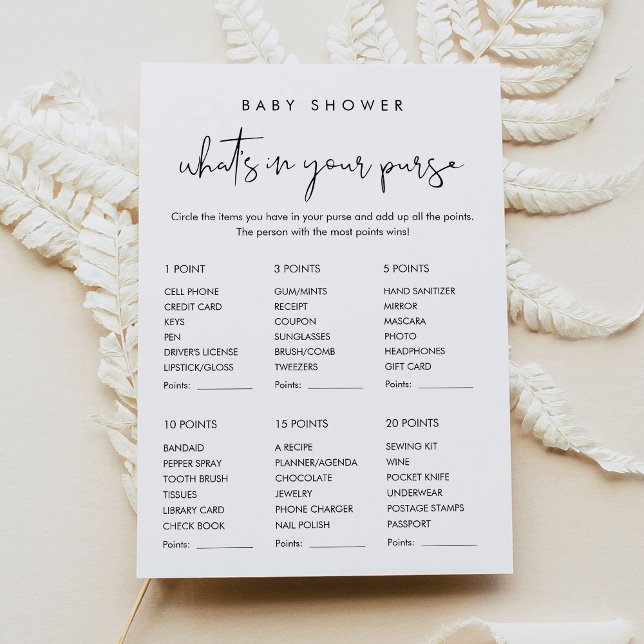 BABY SHOWER
what's in your purse
Circle the items you have in your purse and add up all the points.
The person with the most points wins!
1 POINT
CELL PHONE
CREDIT CARD
KEYS
PEN
DRIVER'S LICENSE
LIPSTICK/GLOSS
Points: ________
3 POINTS
GUM/MINTS
RECEIPT
COUPON
SUNGLASSES
BRUSH/COMB
TWEEZERS
Points: ________
5 POINTS
HAND SANITIZER
MIRROR
MASCARA
PHOTO
HEADPHONES
GIFT CARD
Points: ________
10 POINTS
BANDAID
PEPPER SPRAY
TOOTH BRUSH
TISSUES
LIBRARY CARD
CHECK BOOK
Points: ________
15 POINTS
A RECIPE
PLANNER/AGENDA
CHOCOLATE
JEWELRY
PHONE CHARGER
NAIL POLISH
Points: ________
20 POINTS
SEWING KIT
WINE
POCKET KNIFE
UNDERWEAR
POSTAGE STAMPS
PASSPORT
Points: ________